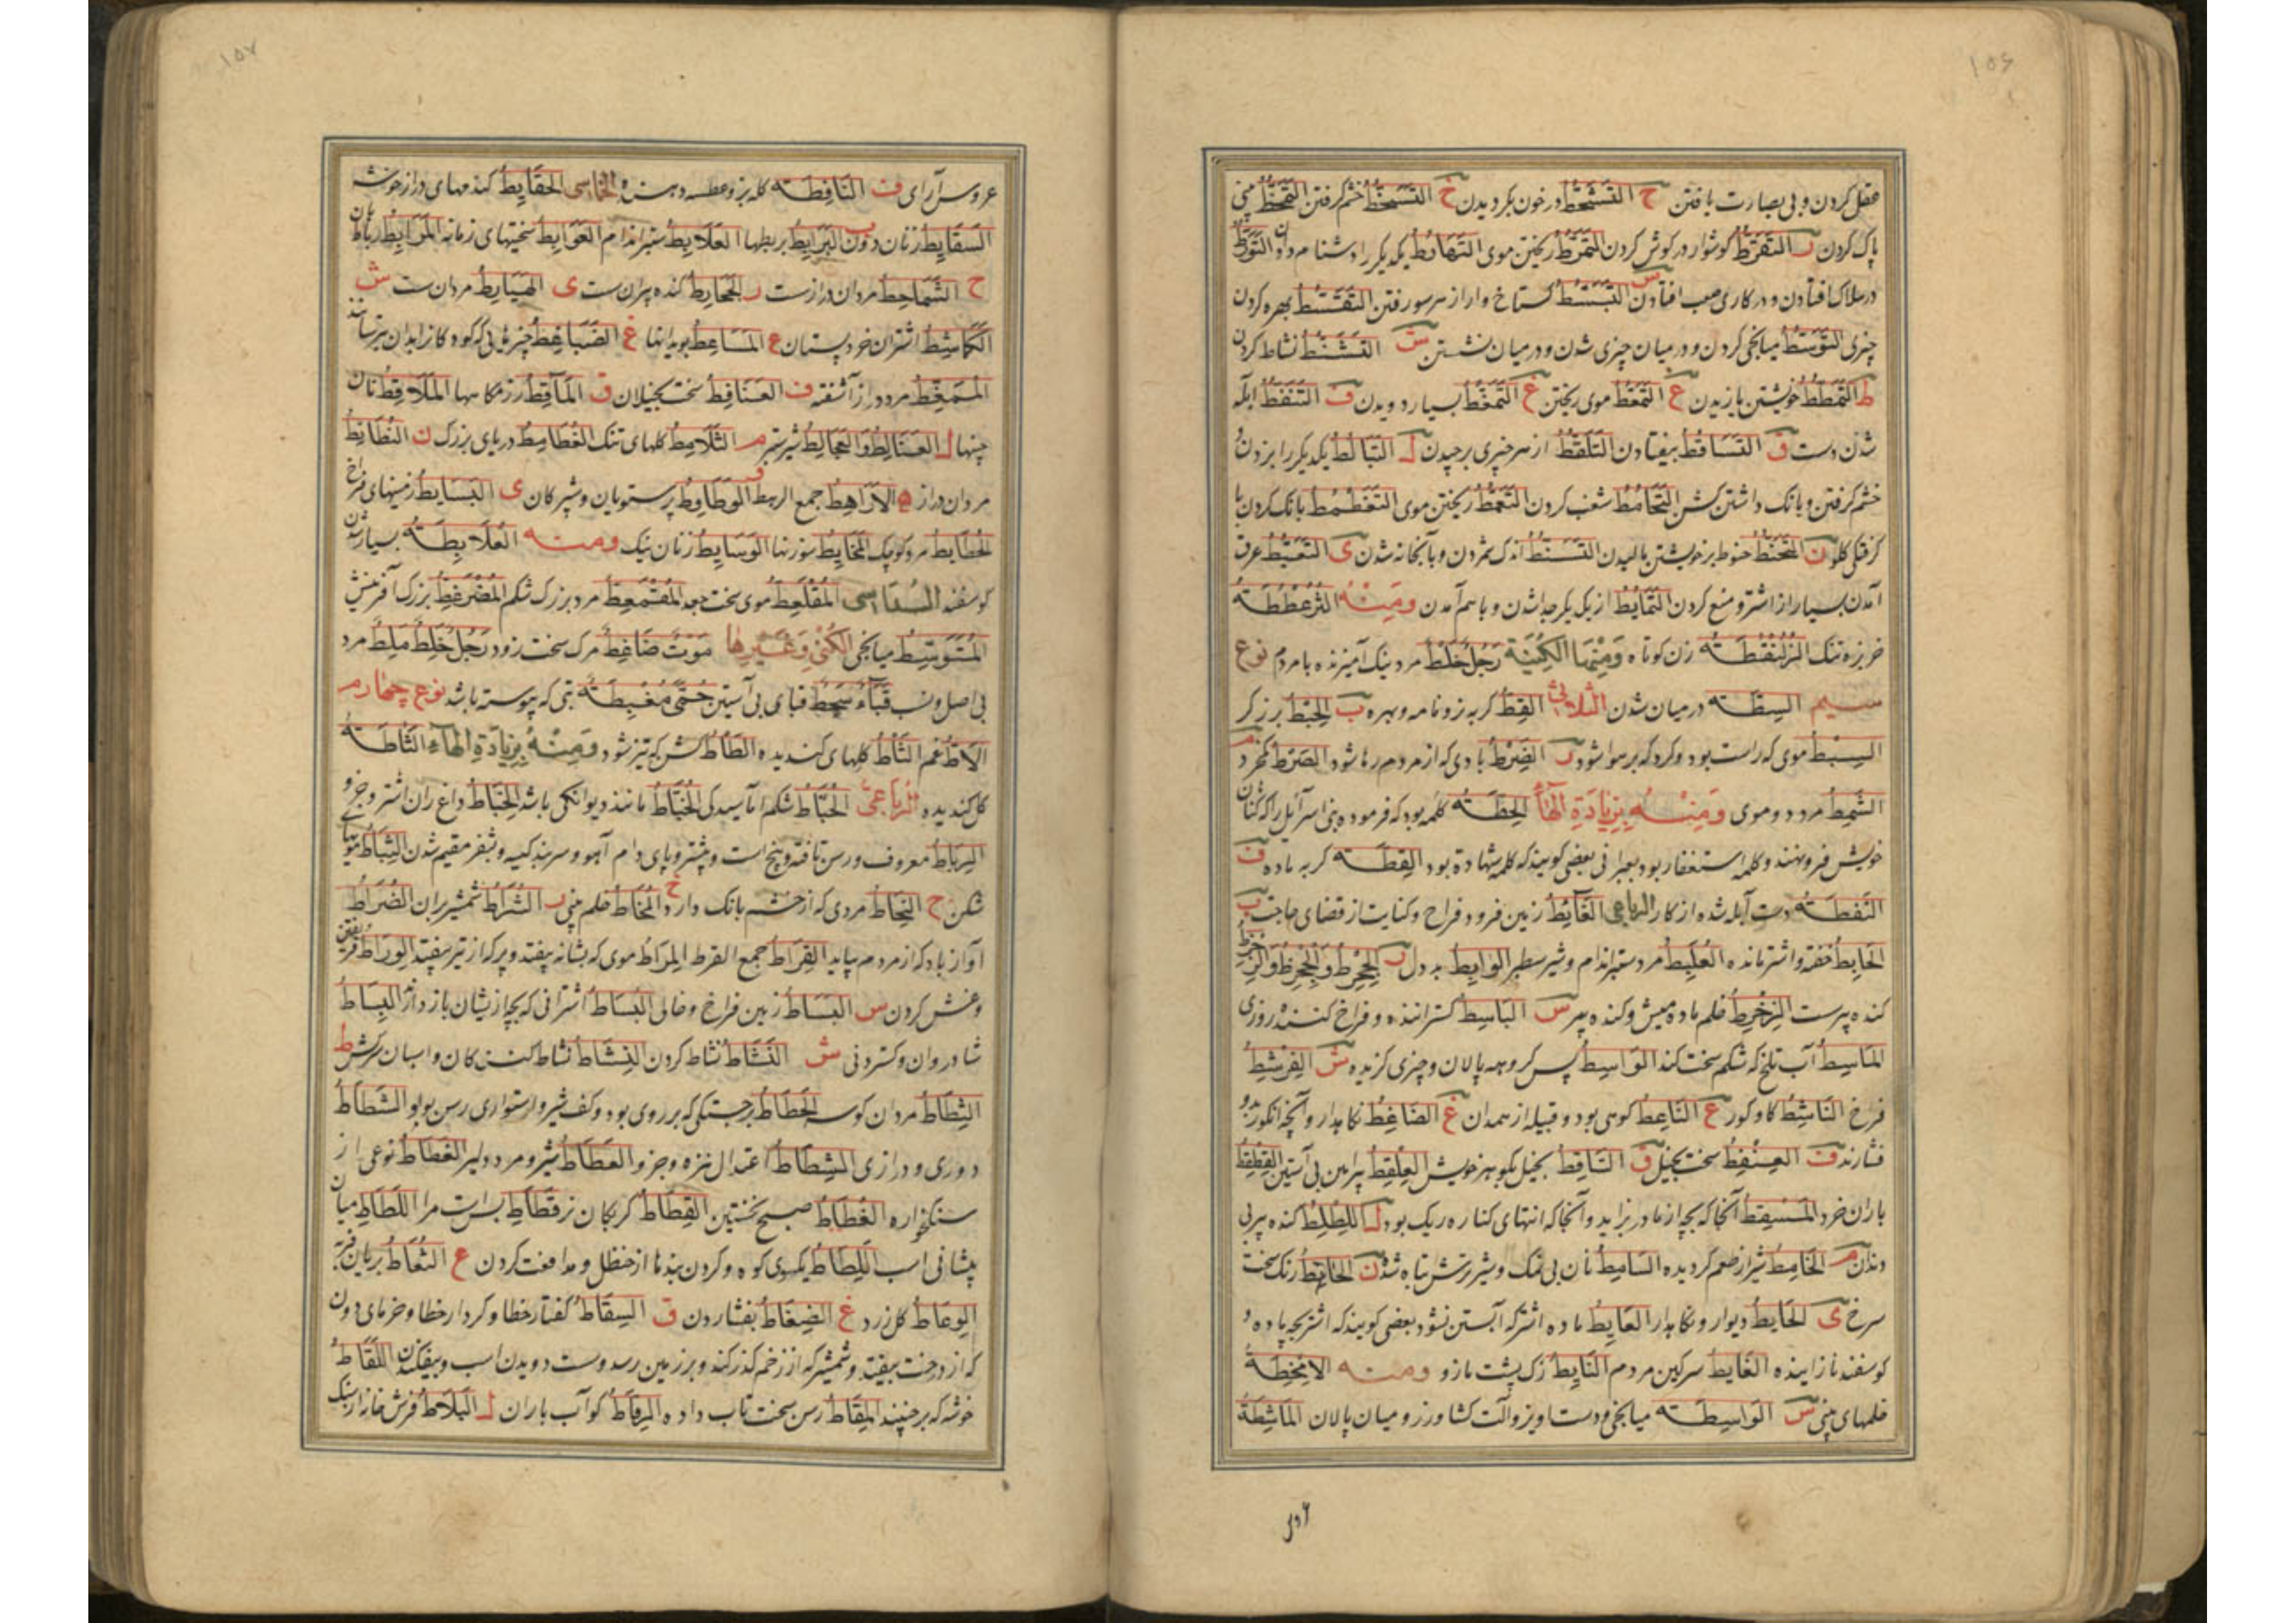 ۱۵۶
عقل کردن و بی بصارت یافتن ح التَشَحُّطُ در خون بگردیدن خ التَسَخُّطُ خشم گرفتن التَمَخُّطُ بینی
پاک کردن ر التَقَرُّطُ گوشوار در گوش کردن التَمَرُّطُ ریختن موی یکدیگر را دشنام دادن التَوَرُّطُ
در هلاک افتادن و در کاری صعب افتادن س التَبَسُّطُ گستاخ وار از هر سو رفتن التَقَسُّطُ بهره کردن
چیزی التَوَسُّطُ میانجی کردن و در میان چیزی شدن و در میان نشستن ش التَنَشُّطُ نشاط کردن
ط التَمَطُّطُ خویشتن یازیدن ع التَمَعُّطُ موی ریختن غ التَمَغُّطُ بسیار دویدن ف التَنَفُّطُ آبله
شدن دست ق التَسَاقُطُ بیفتادن التَلَقُّطُ از هر چیزی برچیدن ل التَبَالُطُ یکدیگر را بزدن
خشم گرفتن و بانک داشتن شغب کردن ریختن موی التَغَطْمُطُ بانک کردن با
گرفتگی گلو ن التَحَنُّطُ حنوط بر خویشتن مالیدن اندک شمردن و بآنجا نه شدن ی التَعَيُّطُ عرق
آمدن بسیار از اشتر و منع کردن التَمَايُطُ از یکدیگر جدا شدن و با هم آمدن وَمِنْهُ الثُرُعْطُطَةُ
خربزه تنک الزُلُنْقُطَةُ زن کوتاه وَمِنْهَا الكُنْيَة رَجُلٌ خَلْطٌ مرد نیک آمیزنده با مردم نوع
سیم السِطَةُ در میان شدن الثلاثي القِطُّ گربه نر و نامه و بهره ب الخَبْطُ برز کر
السِبْطُ موی که راست بود و کرد که بر هوا شود ر الضَرِطُ بادی که از مردم رها شود
الشَمِطُ مرد دو موی وَمِنْهُ بِزِيَادَةِ الهَاءِ الحِطَّةُ کلمه بود که فرموده بنی اسرائیل را که گناهان
خویش فرو نهند و کلمه استغفار بود بعبرانی بعضی گویند که کلمه شهادة بود القِطَّةُ گربه ماده ف
النَفِطَةُ دست آبله شده از کار الرباعي الغَائِطُ زمین فرود فراخ و کنایت از قضای حاجت ب
الخَابِطُ خفته و اشتر مانده العُلَبِطُ مرد ستبر اندام و شیر سطبر الوَابِطُ بد دل ر
کنده پیرست الزِخْرِطُ خلم ماده میش و کنده پیر س البَاسِطُ گستراننده و فراخ کننده روزی
المَاسِطُ آب تلخ که شکم سخت کند الوَاسِطُ پس کروهه پالان و چیزی گزیده ش الفِرْشِطُ
فراخ النَاشِطُ گاو کور ع النَاعِطُ کوهی بود و قبیله از همدان غ الضَاغِطُ نگاهدار و آنچه انگور بدو
فشارند ف العِنْفِطُ سخت بخیل ق السَاقِطُ بخیل بکوهر خویش پیراهن بی آستین القِطْقِطُ
باران خرد المَسْقِطُ آنجا که بچه از مادر بزاید و آنجا که انتهای کناره ریک بود ل اللِطْلِطُ کنده پیر بی
دندان م الخَامِطُ شیر از طعم گردیده السَامِطُ نان بی نمک و شیر ترش تباه شدن ن الحَانِطُ رنک سخت
سرخ ی الحَايِطُ دیوار و نگاهدار العَايِطُ ماده اشتر که آبستن نشود بعضی گویند که اشتر بچه باده و
گوسفند نازاینده الغَايِطُ سرگین مردم النَايِطُ رگ پشت مازو ومنه الامْخِطَةُ
خلمهای بینی س الوَاسِطَةُ میانجی و دست اویز و آلت کشاورز و میان پالان المَاشِطَةُ
۱۵۷
عروس آرای ف النَافِطَةُ گله بز و عطسه دهنده الخماسي الحَقَايِطُ کندمهای دراز خوشه
السَقَايِطُ زنان دون ب البَرَابِطُ بربطها العَلَابِطُ ستبر اندام سختیهای زمانه المَرَابِطُ رباط بان
ح الشَمَاحِطُ مردان درازست ر کنده پیران ست ی الهَيَابِطُ مردان ست ش
الكَمَاشِطُ اشتران خرد پستان ع المَسَاعِطُ غ الضَبَاغِطُ چیزهایی که کودکانرا بدان بترسانند
المُمَغَّطُ مرد دراز آشفته ف العَنَافِطُ سخت بخیلان ق المَآقِطُ رزمگاهها المَلَاقِطُ نان
چنها ل العُثَالِطُ وَالعُجَالِطُ شیر ستبر م الثَلَامِطُ کلهای تنک الغُطَامِطُ دریای بزرگ ن
مردان دراز ه الارَاهِطُ جمع الرهط و الوَطَاوِطُ پرستویان و شپرکان ی البَسَايِطُ زمینهای فراخ
مرد کوچک المَخَايِطُ سوزنها الوَسَايِطُ زنان نیک ومنه العُلَابِطَةُ بسیار شدن
گوسفند السداسي المُقْلَعِطُّ موی سخت جعد المُقْمَعِطُّ مرد بزرگ شکم المُضْرَغِطُّ بزرگ آفرینش
المُتَوَسِّطُ میانجی الكُنَى وَغَيْرِهَا مَوْتٌ ضَاغِطٌ مرگ سخت زود رَجُلٌ خَلِطٌ مَلِطٌ مرد
بی اصل و نسب قَبَاءٌ سُحُطٌ قبای بی آستین حُمَّى مُغْبِطَةٌ تبی که پیوسته باشد نوع چهارم
الثَاطُ کلهای کندیده الطَاطُ کش که تیز شود وَمِنْهُ بِزِيَادَةِ الهَاءِ الثَاطَةُ
گل کندیده الرُبَاعِيُّ الحُبَاطُ شکم آماسیدگی الخُبَاطُ مانند دیوانگی باشد الخِبَاطُ داغ ران اشتر و جز و
الرِبَاطُ معروف و رسن تافته و پنج است و بیشتر و پای دام آهو و سربند کیسه و بثغر مقیم شدن
شکن ح النَحَّاطُ مردی که از خشم بانک دارد خ المُخَاطُ خلم بینی ر الشُرَاطُ شمشیر بران الضُرَاطُ
آواز باد که از مردم بیاید القِرَاطُ جمع القرط المِرَاطُ موی که بشانه بیفتد و پر که از تیر بیفتد الوِرَاطُ فریفتن
و غش کردن س البَسَاطُ زمین فراخ و خالی البُسَاطُ اشترانی که بچه از یشان باز دارند البِسَاطُ
شادروان و گستردنی ش النَشَاطُ نشاط کردن النِشَاطُ نشاط کنندگان و اسبان سرکش ط
الثِطَاطُ مردان کوسه الحَطَاطُ برجستگی که بر روی بود و کف شیر و استواری رسن بوبو الشَطَاطُ
دوری و درازی الشِطَاطُ اعتدال نیزه و جز و العَطَاطُ شیر و مرد دلیر الغَطَاطُ نوعی از
سنگخواره الغُطَاطُ صبح نخستین القِطَاطُ گربکان نر قَطَاطِ بس است مرا اللَطَاطُ میان
پیشانی اسب اللِطَاطُ یکسوی کوه و گردن بندها از حنظل و مدافعت کردن ع
الوِعَاطُ گل زرد غ الضِغَاطُ بفشاردن ق السِقَاطُ گفتار خطا و کردار خطا و خرمای دون
که از درخت بیفتد و شمشیر که از زخم گذر کند و بر زمین رسد و سست دویدن اسب و بیفکندن اللُقَاطُ
خوشه که برچینند المِقَاطُ رسن سخت تاب داده کو آب باران ل البَلَاطُ فرش خانه از سنگ